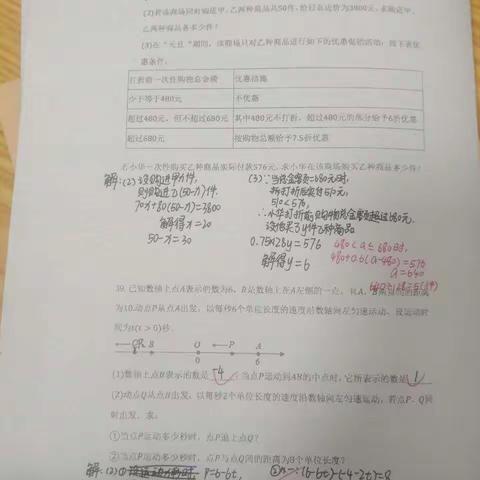 (2)若该商场同时购进甲、乙两种商品共50件，恰好总进价为3800元，求购进甲、
乙两种商品各多少件！
(3)在“元旦”期间，该商场只对乙种商品进行如下的优惠促销活动：按下表优
惠条件，
打折前一次性购物总金额 优惠措施
少于等于480元 不优惠
超过480元，但不超过680元 其中480元不打折，超过480元的部分给予6折优惠
超过680元 按购物总额给予7.5折优惠
若小华一次性购买乙种商品实际付款576元，求小华在该商场购买乙种商品多少件！
解:(2)设购进甲x件,
则购进乙(50-x)件.
70x+80(50-x)=3800
解得x=20
50-x=30
(3)∵当总金额为680元时,
折打折后实付510元,
510<576,
∴小华打折前购物总金额超过680元.
设他买了y件乙种商品
0.75×128y=576
解得y=6
480<a≤680时,
480+0.6(a-480)=576
a=640
640÷128=5(件)
39. 已知数轴上点A表示的数为6，B是数轴上在A左侧的一点，且A，B两点间的距离
为10.动点P从点A出发，以每秒6个单位长度的速度沿数轴向左匀速运动，设运动时
间为t(t>0)秒.
B O P A
0 6
(1)数轴上点B表示的数是 -4 ；当点P运动到AB的中点时，它所表示的数是 1
(2)动点Q从点B出发，以每秒2个单位长度的速度沿数轴向左匀速运动，若点P、Q同
时出发. 求：
①当点P运动多少秒时，点P追上点Q？
②当点P运动多少秒时，点P与点Q间的距离为8个单位长度？
解:(2)① P=6-6t,
(6-6t)-(-4-2t)=8